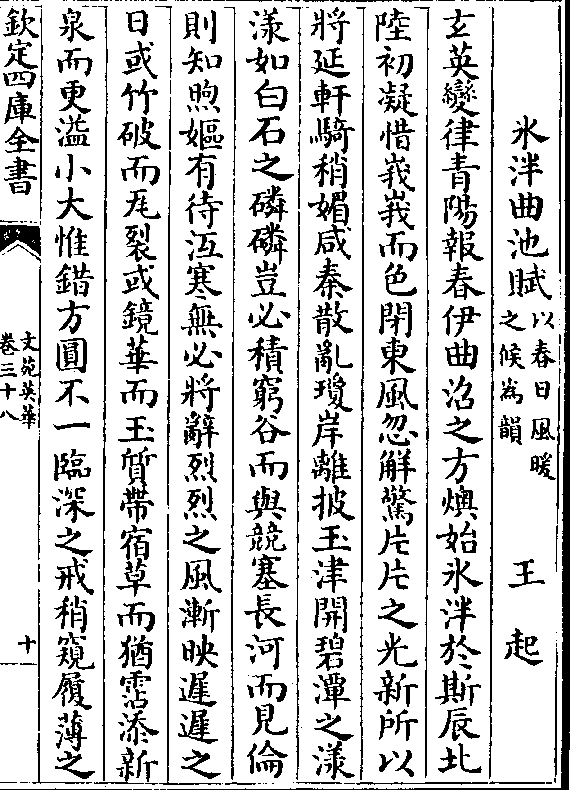 氷泮曲池賦以春日風暖之候為韻 王起
玄英變律青陽報春伊曲沼之方燠始氷泮於斯辰北
陸初凝惜峩峩而色閉東風忽解驚片片之光新所以
將延軒騎稍媚咸秦散亂瓊岸離披玉津開碧潭之漾
漾如白石之磷磷豈必積窮谷而與競塞長河而見倫
則知煦嫗有待沍寒無必將辭烈烈之風漸映遲遲之
日或竹破而瓦裂或鏡華而玉質帶宿草而猶霑添新
泉而更溢小大惟錯方圓不一臨深之戒稍窺履薄之
欽定四庫全書
文苑英華
卷三十八
十